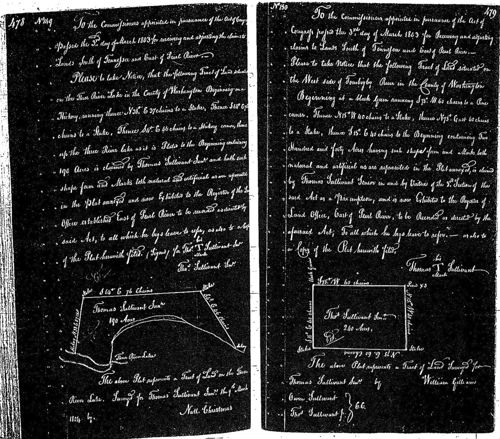 478 No 119
To the Commissioners appointed in pursuance of the Act of Congress
passed the 3d day of March 1803 for receiving and adjusting the claims to
Lands South of Tennessee and East of Pearl River
Please to take Notice, that the following Tract of Land situated
on the Three River Lake in the County of Washington Beginning on a
Hickory, running thence N 30° E 37 chains to a Stake, Thence S 40° E 76
chains to a Stake, Thence chains to a Hickory corner, thence
up the Three River lake as it is Plated to the Beginning containing
190 Acres is claimed by Thomas Sullivant Junr and hath such
shape form and Marks both natural and artificial as are represented
in the Plat annexed and now Exhibited to the Register of the Land
Office established East of Pearl River to be recorded as directed by
said Act, to all which he begs leave to refer, as also to a copy
of the Plat herewith filed, (Signed) for Thos T Sullivant Senr
mark
Thos Sullivant Junr
Stake
S 40° E 76 Chains
Stake
Thomas Sullivant Junr
190 Acres
Three River Lake
Hicky
The above Plat represents a Tract of Land on the Three
River Lake. Surveyed for Thomas Sullivant Junr the March
1804 by.
Natt Christmas
No 120
479
To the Commissioners appointed in pursuance of the Act of
Congress passed the 3rd day of March 1803 for Receiving and adjusting the
claims to Lands South of Tennessee and East of Pearl River
Please to take Notice that the following Tract of Land situated on
the West side of Tombigby River in the County of Washington
Beginning at a black Gum running S 75° W 63 chains to a Pine
corner. Thence N 15° W 40 chains to a Stake, thence N 75° E 60 chains
to a Stake, thence S 15° E 40 chains to the Beginning containing Two
Hundred and forty Acres having such shape form and Marks both
natural and artificial as are represented in the Plat annexed, is claimed
by Thomas Sullivant Senior in and by Virtue of the 3d Section of the
said Act as a Pre-emption, and is now Exhibited to the Register of
Land Office, East of Pearl River, to be Recorded as directed by the
aforesaid Act; To all which he begs leave to refer — as also to
a Copy of the Plat herewith filed,
his
Thomas T Sullivant
mark
S 75° W 63 chains
Thos Sullivant Senr
240 Acres.
Stake
N 75 E 63 Chains
Stake
The above Plat represents a Tract of Land Surveyed for
Thomas Sullivant Senr by William Gilliam
Owen Sullivant
Thos Sullivant Jr
CC.